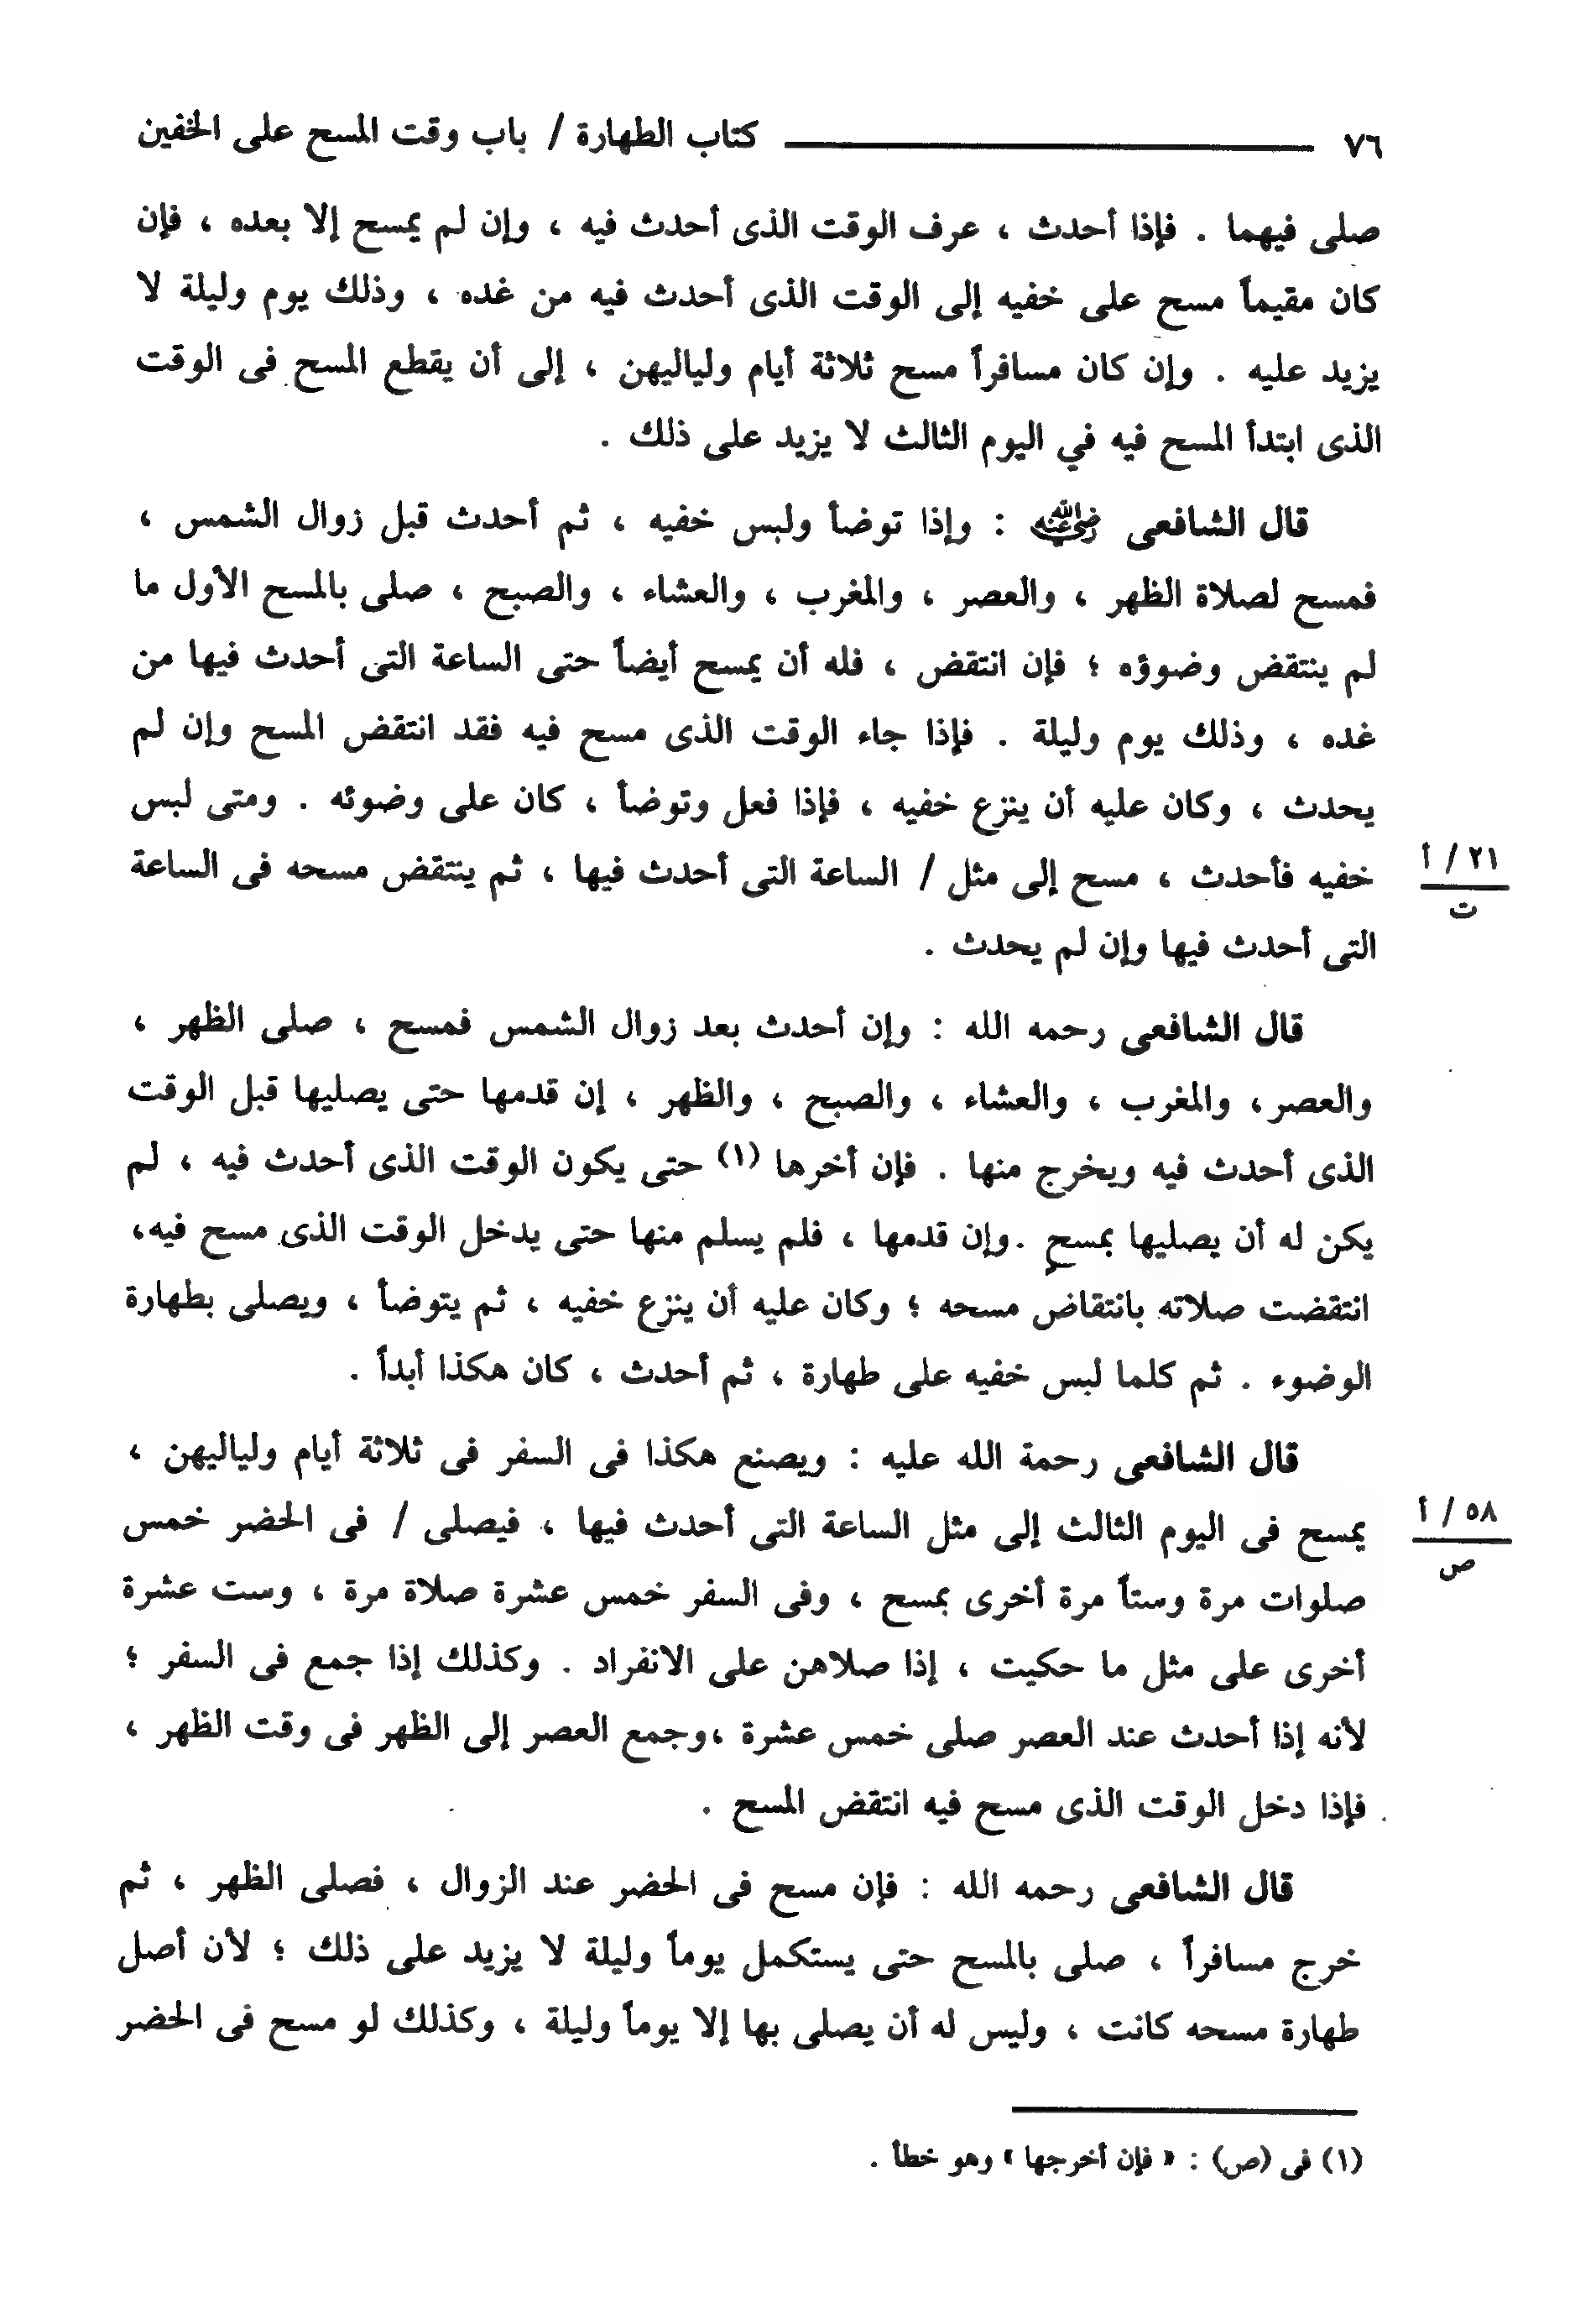 ٧٦ كتاب الطهارة / باب وقت المسح على الخفين
صلى فيهما . فإذا أحدث ، عرف الوقت الذى أحدث فيه ، وإن لم يمسح إلا بعده ، فإن
كان مقيماً مسح على خفيه إلى الوقت الذى أحدث فيه من غده ، وذلك يوم وليلة لا
يزيد عليه . وإن كان مسافراً مسح ثلاثة أيام ولياليهن ، إلى أن يقطع المسح فى الوقت
الذى ابتدأ المسح فيه في اليوم الثالث لا يزيد على ذلك .
قال الشافعى رضي الله عنه : وإذا توضأ ولبس خفيه ، ثم أحدث قبل زوال الشمس ،
فمسح لصلاة الظهر ، والعصر ، والمغرب ، والعشاء ، والصبح ، صلى بالمسح الأول ما
لم ينتقض وضوؤه ؛ فإن انتقض ، فله أن يمسح أيضاً حتى الساعة التى أحدث فيها من
غده ، وذلك يوم وليلة . فإذا جاء الوقت الذى مسح فيه فقد انتقض المسح وإن لم
يحدث ، وكان عليه أن ينزع خفيه ، فإذا فعل وتوضأ ، كان على وضوئه . ومتى لبس
خفيه فأحدث ، مسح إلى مثل / الساعة التى أحدث فيها ، ثم ينتقض مسحه فى الساعة
٢١ / أ
ت
التى أحدث فيها وإن لم يحدث .
قال الشافعى رحمه الله : وإن أحدث بعد زوال الشمس فمسح ، صلى الظهر ،
والعصر، والمغرب ، والعشاء ، والصبح ، والظهر ، إن قدمها حتى يصليها قبل الوقت
الذى أحدث فيه ويخرج منها . فإن أخرها (١) حتى يكون الوقت الذى أحدث فيه ، لم
يكن له أن يصليها بمسحٍ .وإن قدمها ، فلم يسلم منها حتى يدخل الوقت الذى مسح فيه،
انتقضت صلاته بانتقاض مسحه ؛ وكان عليه أن ينزع خفيه ، ثم يتوضأ ، ويصلى بطهارة
الوضوء . ثم كلما لبس خفيه على طهارة ، ثم أحدث ، كان هكذا أبداً .
قال الشافعى رحمة الله عليه : ويصنع هكذا فى السفر فى ثلاثة أيام ولياليهن ،
يمسح فى اليوم الثالث إلى مثل الساعة التى أحدث فيها ، فيصلى / فى الحضر خمس
٥٨ / أ
ص
صلوات مرة وستاً مرة أخرى بمسح ، وفى السفر خمس عشرة صلاة مرة ، وست عشرة
أخرى على مثل ما حكيت ، إذا صلاهن على الانفراد . وكذلك إذا جمع فى السفر ؛
لأنه إذا أحدث عند العصر صلى خمس عشرة ،وجمع العصر إلى الظهر فى وقت الظهر ،
فإذا دخل الوقت الذى مسح فيه انتقض المسح .
قال الشافعى رحمه الله : فإن مسح فى الحضر عند الزوال ، فصلى الظهر ، ثم
خرج مسافراً ، صلى بالمسح حتى يستكمل يوماً وليلة لا يزيد على ذلك ؛ لأن أصل
طهارة مسحه كانت ، وليس له أن يصلى بها إلا يوماً وليلة ، وكذلك لو مسح فى الحضر
(١) فى (ص) : « فإن أخرجها » وهو خطأ .